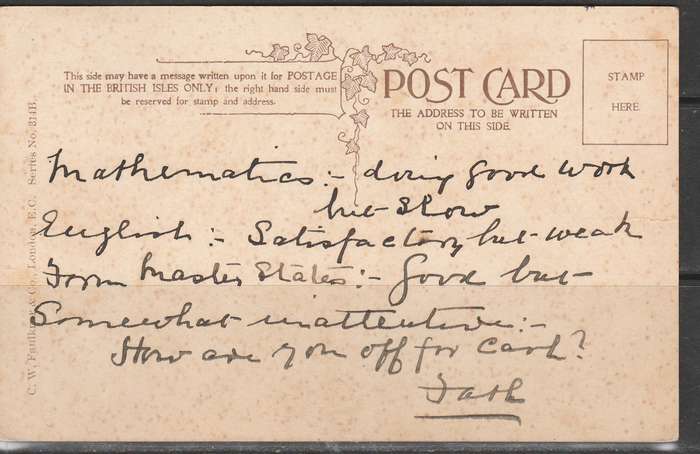 This side may have a message written upon it for POSTAGE
IN THE BRITISH ISLES ONLY: the right hand side must
be reserved for stamp and address.
POST CARD
THE ADDRESS TO BE WRITTEN
ON THIS SIDE.
STAMP
HERE.
C. W. Faulkner & Co., London, E.C. Series No. 314B.
Mathematics:- doing good work
but slow
English:- Satisfactory but weak
Form Master States:- Good but
Somewhat inattentive:-
How are you off for Cash?